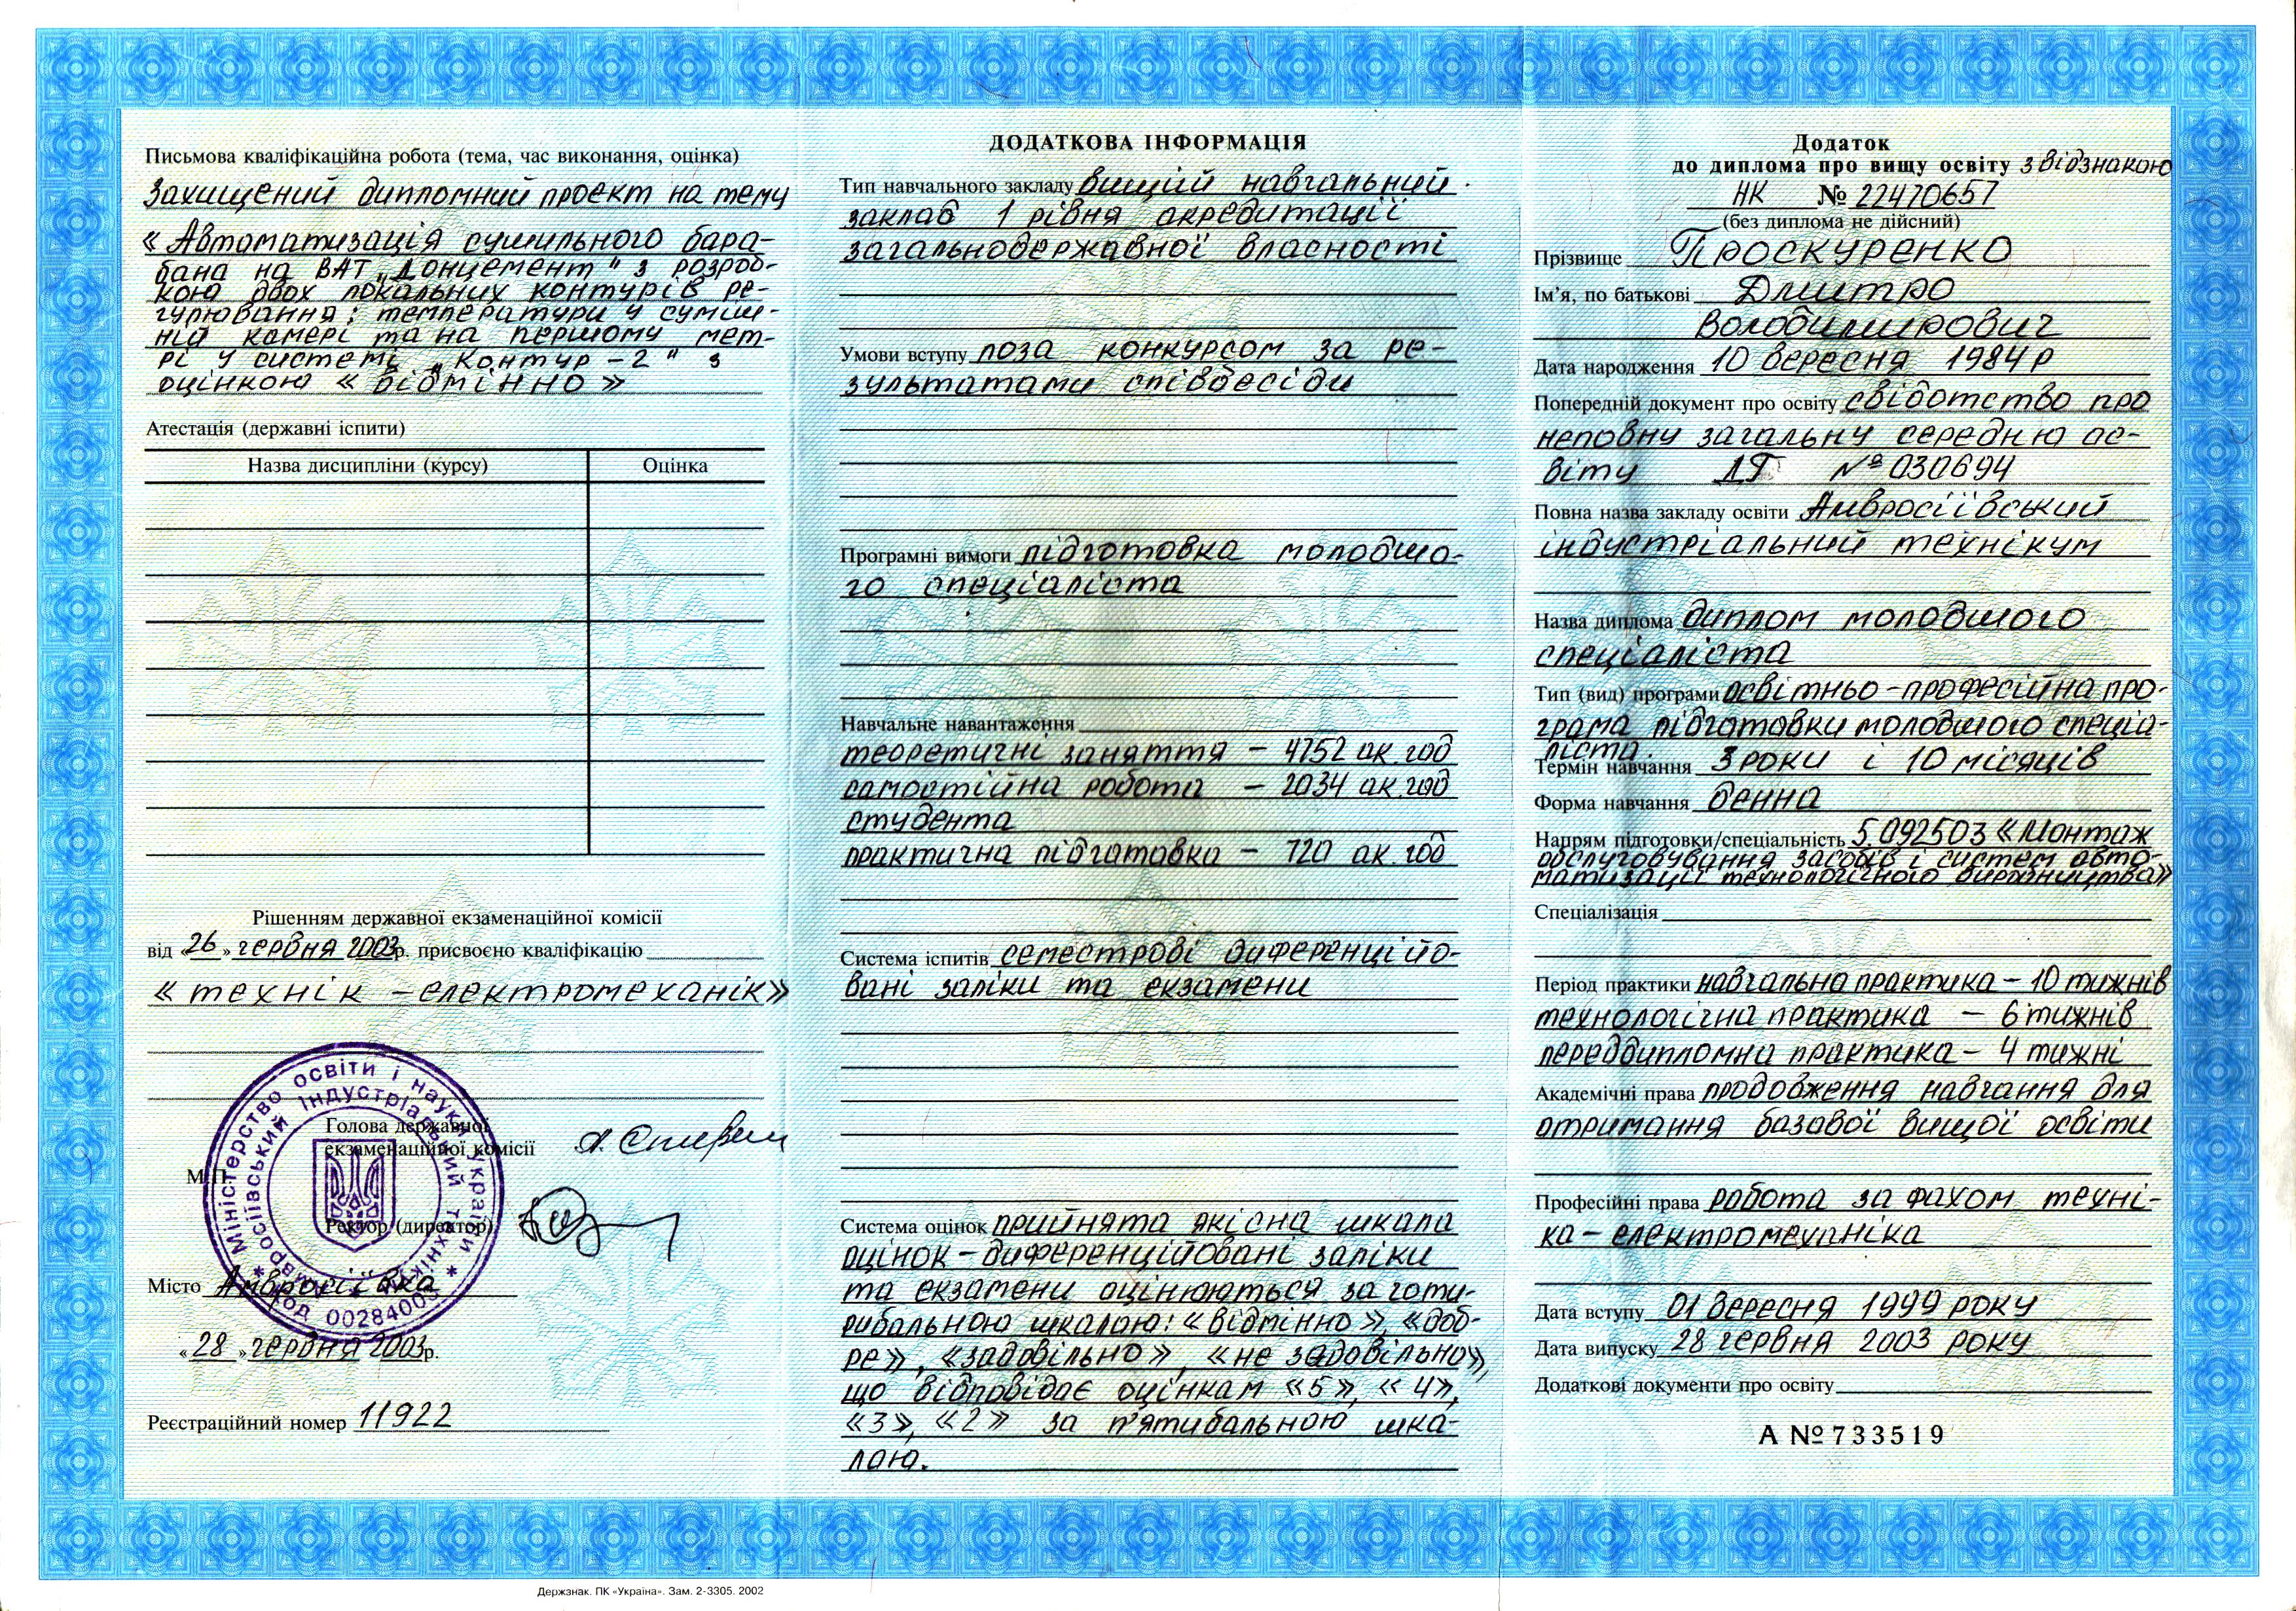 Письмова кваліфікаційна робота (тема, час виконання, оцінка)
Захищений дипломний проект на тему
«Автоматизація сушильного бара-
бана на ВАТ „Донцемент" з розроб-
кою двох локальних контурів ре-
гулювання; температури у суміш-
ній камері та на першому мет-
рі у системі Контур-2" з
оцінкою «ВІДМІННО»
Атестація (державні іспити)
Назва дисципліни (курсу)
Оцінка
Рішенням державної екзаменаційної комісії
від «26» червня 2003р. присвоєно кваліфікацію
«технік-електромеханік»
Голова державної
екзаменаційної комісії
Ректор (директор)
М.П.
Міністерство освіти і науки України *
Амвросіївський індустріальний технікум
Код 00284003
Місто Амвросіївка
«28» червня 2003р.
Реєстраційний номер 11922
ДОДАТКОВА ІНФОРМАЦІЯ
Тип навчального закладу Вищій навчальний
заклад 1 рівня акредитації
загальнодержавної власності
Умови вступу поза конкурсом за ре-
зультатами співбесіди
Програмні вимоги підготовка молодшо-
го спеціаліста
Навчальне навантаження
теоретичні заняття – 4752 ак.год
самостійна робота – 2034 ак.год
студента
практична підготовка – 720 ак.год
Система іспитів семестрові диференційо-
вані заліки та екзамени
Система оцінок прийнята якісна шкала
оцінок – диференційовані заліки
та екзамени оцінюються за чоти-
рибальною шкалою: «відмінно» «доб-
ре», «задовільно» «не задовільно»,
що відповідає оцінкам «5», «4»,
«3», «2» за п'ятибальною шка-
лою.
Додаток
до диплома про вищу освіту з відзнакою
НК № 22470657
(без диплома не дійсний)
Прізвище Проскуренко
Ім'я, по батькові Дмитро
Володимирович
Дата народження 10 вересня 1984р
Попередній документ про освіту свідотство про
неповну загальну середню ос-
віту АТ № 030694
Повна назва закладу освіти Амвросіївський
індустріальний технікум
Назва диплома диплом молодшого
спеціаліста
Тип (вид) програми освітньо-професійна про-
грама підготовки молодшого спеціа-
ліста.
Термін навчання 3 роки і 10 місяців
Форма навчання денна
Напрям підготовки/спеціальність 5.092503 «Монтаж
обслуговування засобів і систем авто-
матизації технологічного виробництва»
Спеціалізація
Період практики навчальна практика – 10 тижнів
технологічна практика – 6 тижнів
переддипломна практика – 4 тижні
Академічні права продовження навчання для
отримання базової вищої освіти
Професійні права робота за фахом техні-
ка-електромеханіка
Дата вступу 01 вересня 1999 року
Дата випуску 28 червня 2003 року
Додаткові документи про освіту
А №733519
Держзнак. ПК «Україна». Зам. 2-3305. 2002